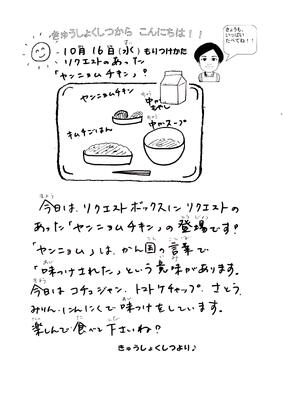 きゅうしょくしつから こんにちは！！
きょうも、
いっぱい
たべてね！！
・10月16日(水) もりつけかた
・リクエストのあった
「ヤンニョムチキン」？
ヤンニョムチキン
キムチごはん
中かスープ
今日は、リクエストボックスに リクエストの
あった「ヤンニョムチキン」の 登場です？
「ヤンニョム」は、かん国の 言葉で
「味つけされた」という 意味があります。
今日は コチュジャン、トマトケチャップ、さとう、
みりん・にんにくで 味つけをしています。
楽しんで 食べて 下さいね？
きゅうしょくしつより♪